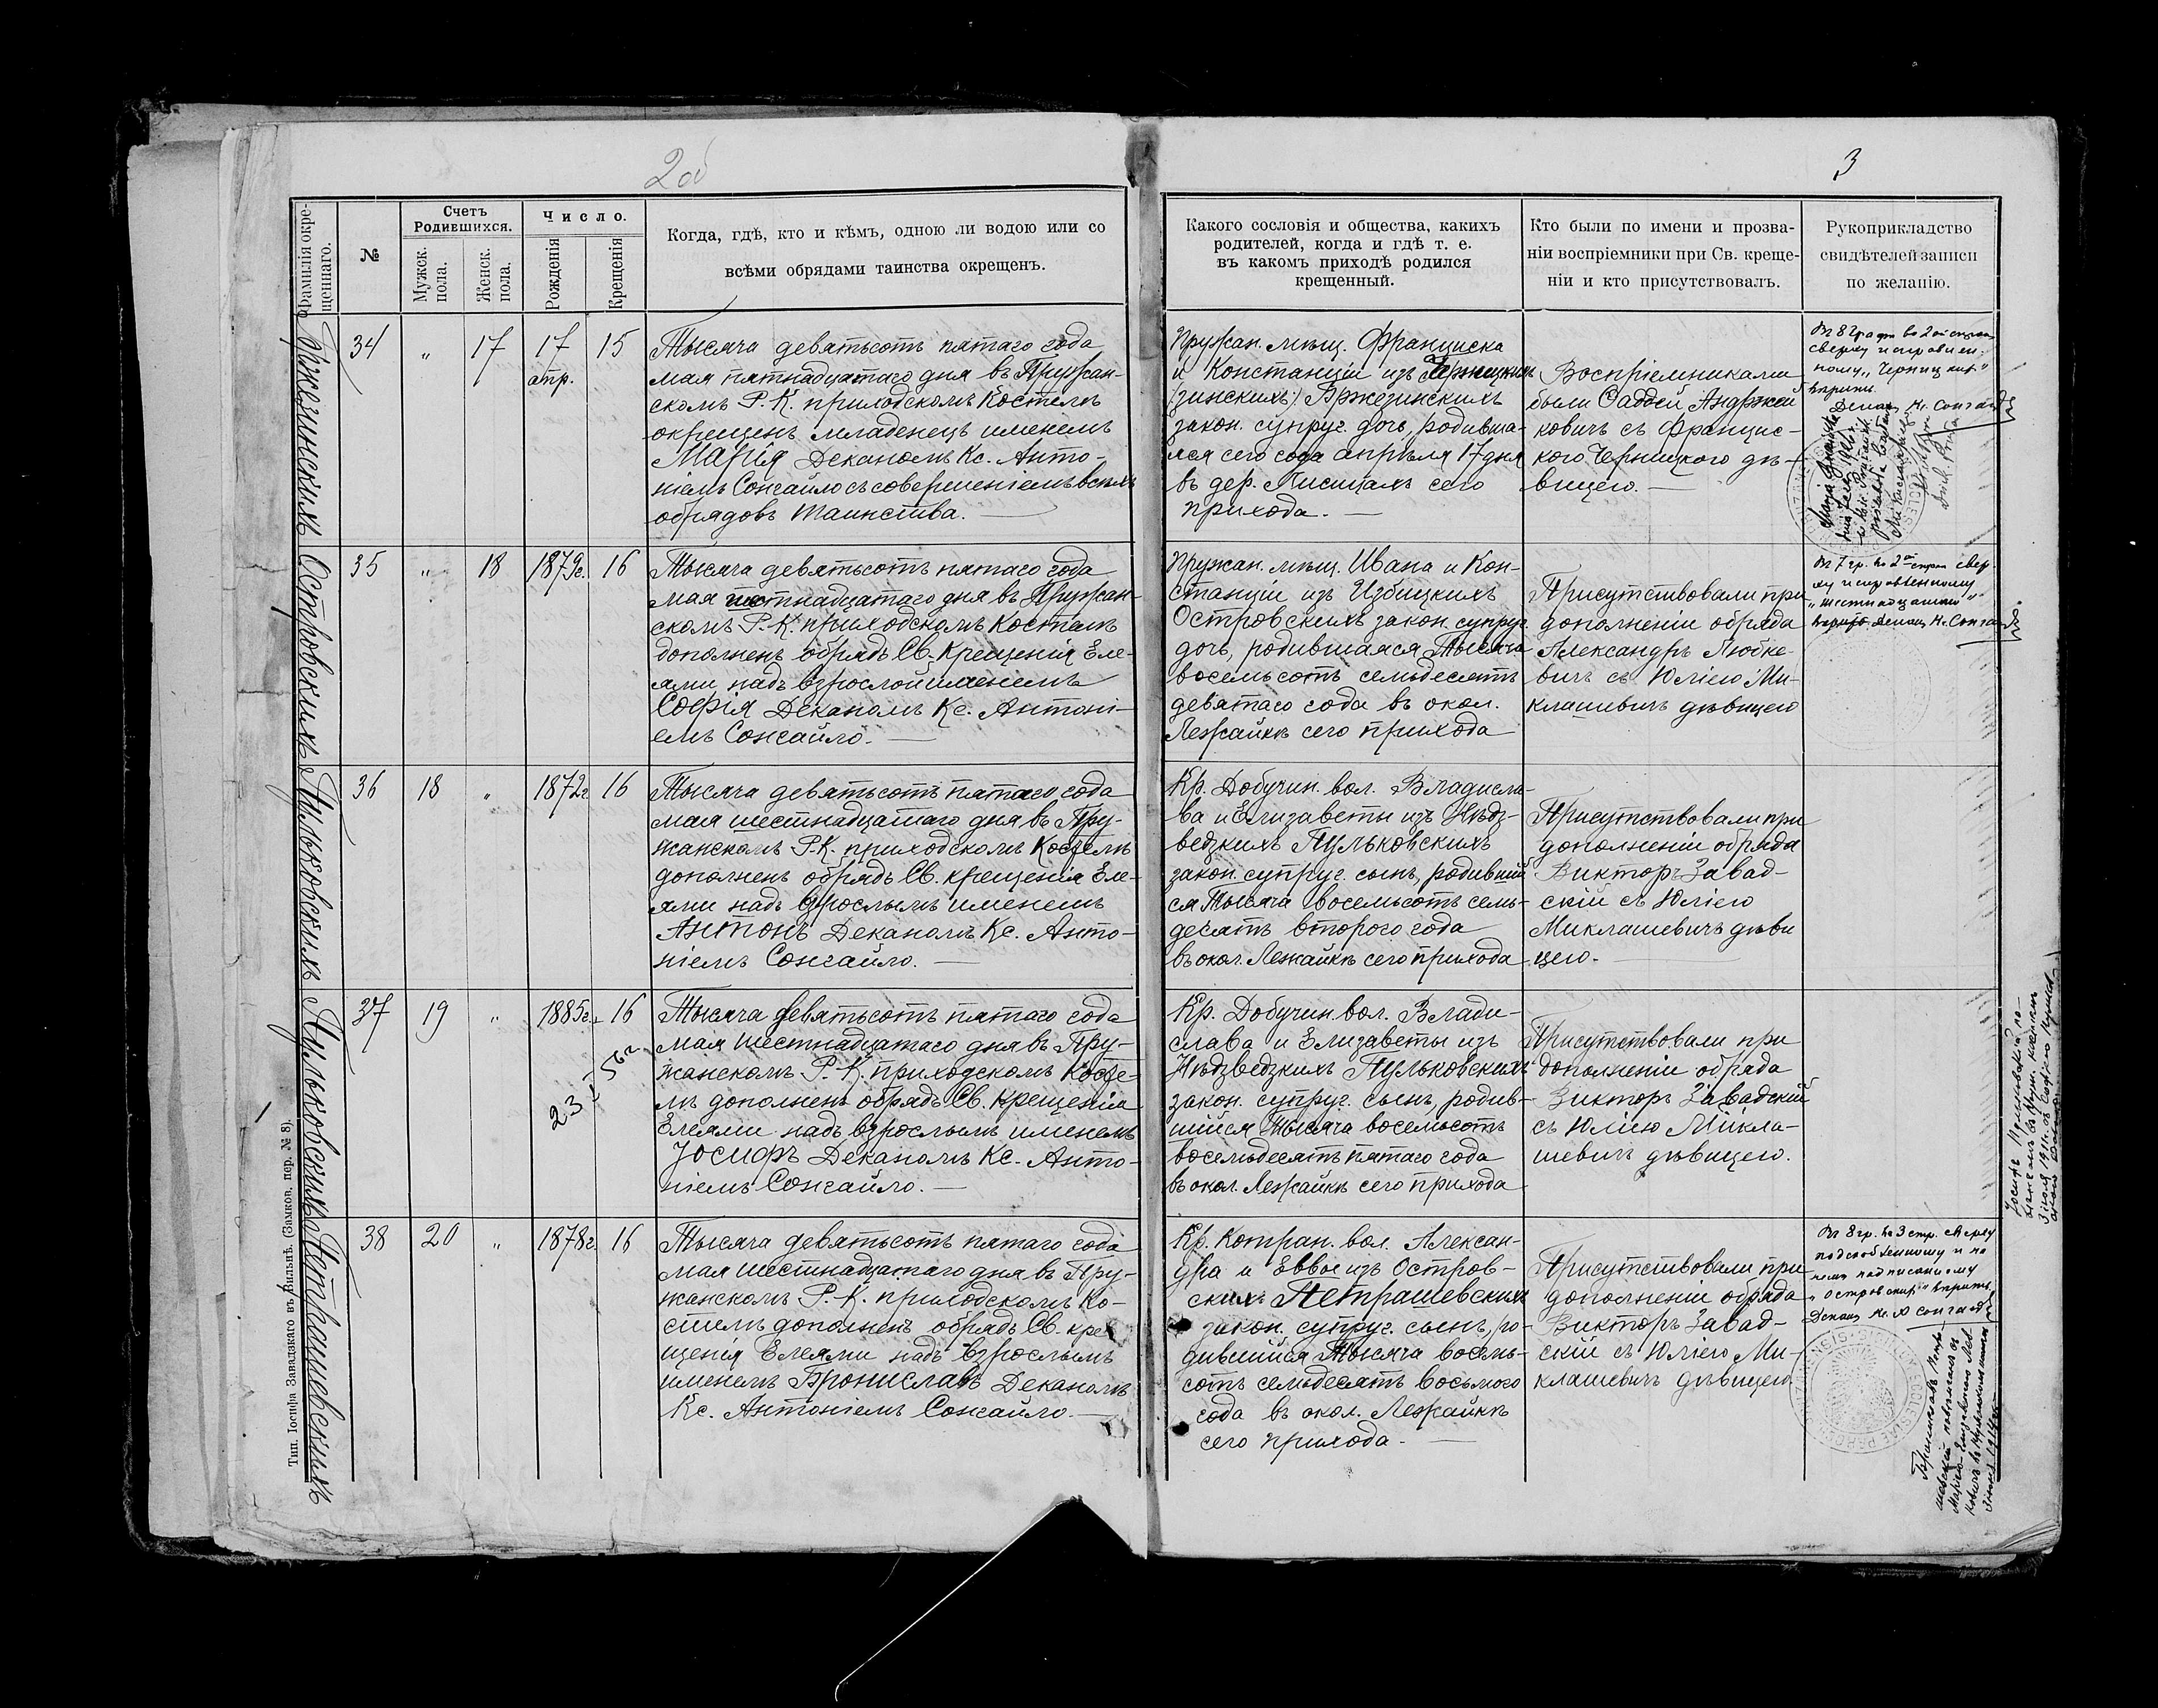 2об
3
Фамилія окре-
щеннаго.
№
Счетъ
Родившихся.
Мужск.
пола.
Женск.
пола.
Число.
Рожденія
Крещенія
Когда, гдѣ, кто и кѣмъ, одною ли водою или со
всѣми обрядами таинства окрещенъ.
Какого сословія и общества, какихъ
родителей, когда и гдѣ т. е.
въ какомъ приходѣ родился
крещенный.
Кто были по имени и прозва-
ніи воспріемники при Св. креще-
ніи и кто присутствовалъ.
Рукоприкладство
свидѣтелей записи
по желанію.
Бржезинскихъ
34
"
17
17
апр.
15
Тысяча девятьсотъ пятаго года
мая пятнадцатаго дня въ Пружан-
скомъ Р.-К. приходскомъ Костелѣ
окрещенъ младенецъ именемъ
Марія Деканомъ Кс. Анто-
ніемъ Сонгайло съ совершеніемъ всѣхъ
обрядовъ Таинства.
Пружан. мѣщ. Франциска
и Констанціи изъ Черницкихъ
Бржезинскихъ
закон. супруг. дочь, родивша-
яся сего года апрѣля 17 дня
въ дер. сего
прихода.
Воспріемниками
были Фаддей Андржей
ковичъ съ Францис-
кою Черницкою дѣ-
вицею.
Въ 8 графѣ во 2ой строкѣ
сверху исправлен-
ному "Черницкихъ"
вѣрить.
Деканъ Кс. Сонгайло
Островскихъ
35
"
18
1879г.
16
Тысяча девятьсотъ пятаго года
мая шестнадцатаго дня въ Пружан-
скомъ Р.-К. приходскомъ Костелѣ
дополненъ обрядъ Св. Крещенія Еле-
ями надъ взрослой именемъ
Софія Деканомъ Кс. Антоні-
емъ Сонгайло.
Пружан. мѣщ. Ивана и Кон-
станціи изъ Избицкихъ
Островскихъ закон. супруг.
дочь, родившаяся Тысяча
восемьсотъ семьдесятъ
девятаго года въ окол.
Лежайкѣ сего прихода
Присутствовали при
дополненіи обряда
Александръ Любке-
вичъ съ Юліею Ми-
клашевичъ дѣвицею
Въ 7 гр. во 2ой строкѣ свер-
ху исправленному
"шестнадцатаго"
вѣрить. Деканъ Кс. Сонгайло.
Пульковскихъ
36
18
"
1872г.
16
Тысяча девятьсотъ пятаго года
мая шестнадцатаго дня въ Пру-
жанскомъ Р.-К. приходскомъ Костелѣ
дополненъ обрядъ Св. крещенія Еле-
ями надъ взрослымъ именемъ
Антонъ Деканомъ Кс. Анто-
ніемъ Сонгайло.
Кр. Добучин. вол. Владисла-
ва и Елизаветы изъ Нѣдз-
ведзкихъ Пульковскихъ
закон. супруг. сынъ, родившій
ся Тысяча восемьсотъ семь-
десятъ второго года
въ окол. Лежайкѣ сего прихода
Присутствовали при
дополненіи обряда
Викторъ Завад-
скій съ Юліею
Миклашевичъ дѣви
цею.
Пульковскихъ
37
19
"
1885г.
16
Тысяча девятьсотъ пятаго года
мая шестнадцатаго дня въ Пру-
жанскомъ Р.-К. приходскомъ Косте-
лѣ дополненъ обрядъ Св. Крещенія
Елеями надъ взрослымъ именемъ
Іосифъ Деканомъ Кс. Анто-
ніемъ Сонгайло.
Кр. Добучин. вол. Влади-
слава и Елизаветы изъ
Нѣдзведзкихъ Пульковскихъ
закон. супруг. сынъ, родив-
шійся Тысяча восемьсотъ
восемьдесятъ пятаго года
въ окол. Лежайкѣ сего прихода
Присутствовали при
дополненіи обряда
Викторъ Завадскій
съ Юліею Микла-
шевичъ дѣвицею.
Петрашевскихъ
38
20
"
1878г.
16
Тысяча девятьсотъ пятаго года
мая шестнадцатаго дня въ Пру-
жанскомъ Р.-К. приходскомъ Ко-
стелѣ дополненъ обрядъ Св. кре-
щенія Елеями надъ взрослымъ
именемъ Брониславъ Деканомъ
Кс. Антоніемъ Сонгайло.
Кр. Котран. вол. Алексан-
дра и Еввы изъ Остров-
скихъ Петрашевскихъ
закон. супруг. сынъ, ро-
дившійся Тысяча восемь-
сотъ семьдесятъ восьмого
года въ окол. Лежайкѣ
сего прихода.
Присутствовали при
дополненіи обряда
Викторъ Завад-
скій съ Юліею Ми-
клашевичъ дѣвицею
Въ 8 гр. во 3 стр. сверху
"Островскихъ" вѣрить.
Деканъ Кс. А Сонгайло
Тип. Іосифа Завадзкаго въ Вильнѣ. (Замков. пер. № 8).